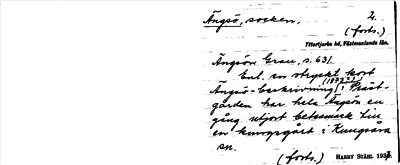 Ängsö, socken. 2.
(forts.)
Yttertjurbo hd, Västmanlands län.
Ängsön Grau, s. 631.
Enl. en utryckt kort
Ängsö-beskrivning (1877?) i Präst-
gården har hela Ängsön en
gång utgjort betesmark till
en kungsgård i Kungsåra
sn.
(forts.) HARRY STÅHL 1937.